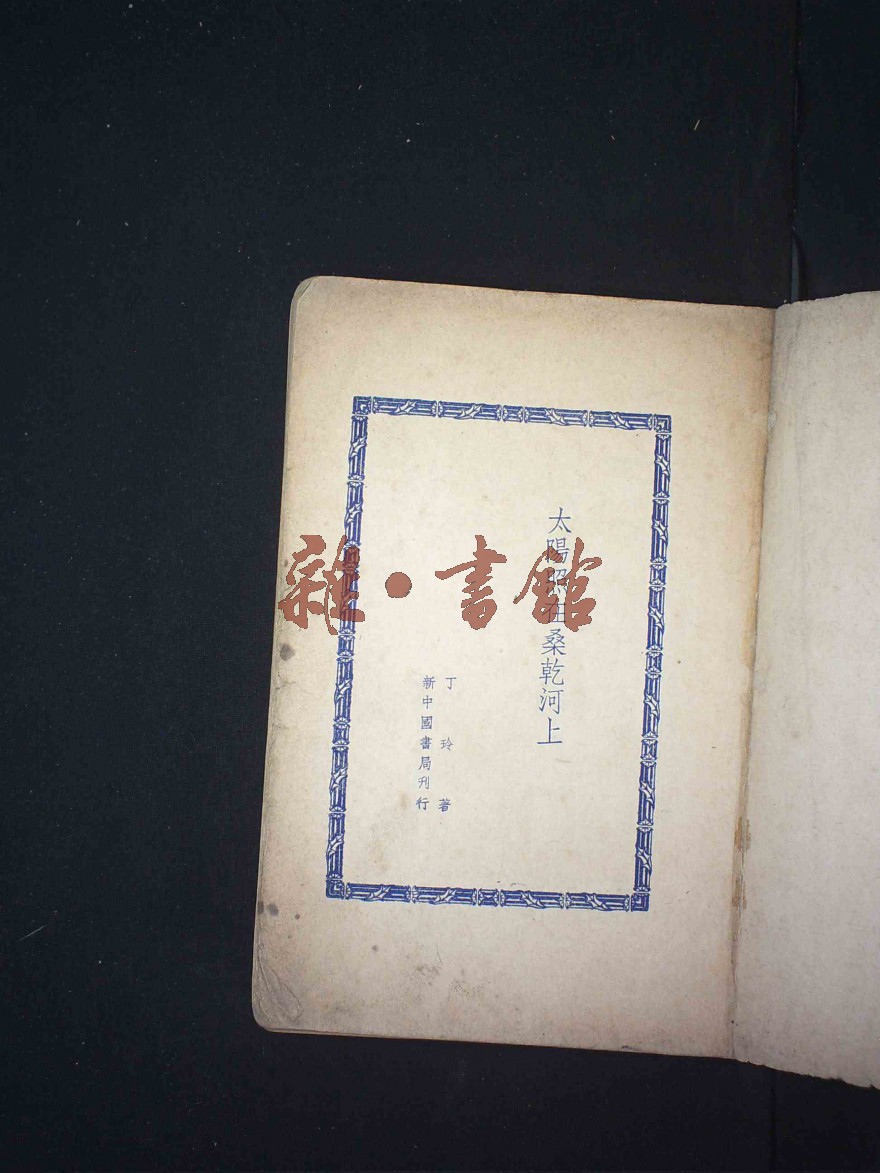 太陽照在桑乾河上
丁玲著
新中國書局刊行
雜·書館